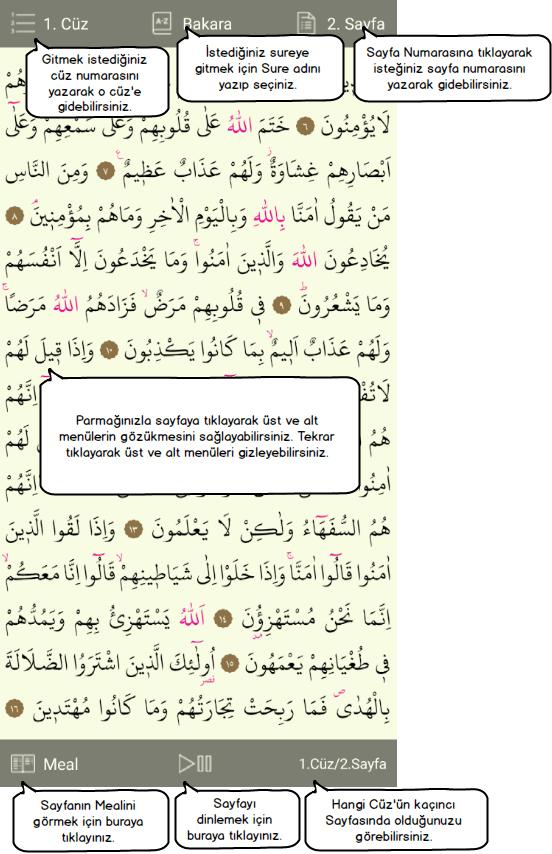 1. Cüz
Bakara
2. Sayfa
Gitmek istediğiniz
cüz numarasını
yazarak o cüz'e
gidebilirsiniz.
İstediğiniz sureye
gitmek için Sure adını
yazıp seçiniz.
Sayfa Numarasına tıklayarak
isteğiniz sayfa numarasını
yazarak gidebilirsiniz.
لَا يُؤْمِنُونَ ٦ خَتَمَ اللّٰهُ عَلٰى قُلُوبِهِمْ وَعَلٰى سَمْعِهِمْ وَعَلٰٓى
اَبْصَارِهِمْ غِشَاوَةٌۘ وَلَهُمْ عَذَابٌ عَظ۪يمٌ۟ ٧ وَمِنَ النَّاسِ
مَنْ يَقُولُ اٰمَنَّا بِاللّٰهِ وَبِالْيَوْمِ الْاٰخِرِ وَمَاهُمْ بِمُؤْمِن۪ينَۢ ٨
يُخَادِعُونَ اللّٰهَ وَالَّذ۪ينَ اٰمَنُواۚ وَمَا يَخْدَعُونَ اِلَّٓا اَنْفُسَهُمْ
وَمَا يَشْعُرُونَۜ ٩ ف۪ي قُلُوبِهِمْ مَرَضٌۙ فَزَادَهُمُ اللّٰهُ مَرَضًاۚ
وَلَهُمْ عَذَابٌ اَل۪يمٌۙ بِمَا كَانُوا يَكْذِبُونَ ١٠ وَاِذَا ق۪يلَ لَهُمْ
اِنَّهُمْ
Parmağınızla sayfaya tıklayarak üst ve alt
menülerin gözükmesini sağlayabilirsiniz. Tekrar
tıklayarak üst ve alt menüleri gizleyebilirsiniz.
هُمُ
لَهُمْ
اِنَّهُمْ
هُمُ السُّفَهَٓاءُ وَلٰكِنْ لَا يَعْلَمُونَ ١٣ وَاِذَا لَقُوا الَّذ۪ينَ
اٰمَنُوا قَالُٓوا اٰمَنَّاۚ وَاِذَا خَلَوْا اِلٰى شَيَاط۪ينِهِمْۙ قَالُٓوا اِنَّا مَعَكُمْۙ
اِنَّمَا نَحْنُ مُسْتَهْزِؤُ۫نَ ١٤ اَللّٰهُ يَسْتَهْزِئُ بِهِمْ وَيَمُدُّهُمْ
ف۪ي طُغْيَانِهِمْ يَعْمَهُونَ ١٥ اُو۬لٰٓئِكَ الَّذ۪ينَ اشْتَرَوُا الضَّلَالَةَ
بِالْهُدٰىۖ فَمَا رَبِحَتْ تِجَارَتُهُمْ وَمَا كَانُوا مُهْتَد۪ينَ ١٦
Meal
1.Cüz/2.Sayfa
Sayfanın Mealini
görmek için buraya
tıklayınız.
Sayfayı
dinlemek için
buraya tıklayınız.
Hangi Cüz'ün kaçıncı
Sayfasında olduğunuzu
görebilirsiniz.